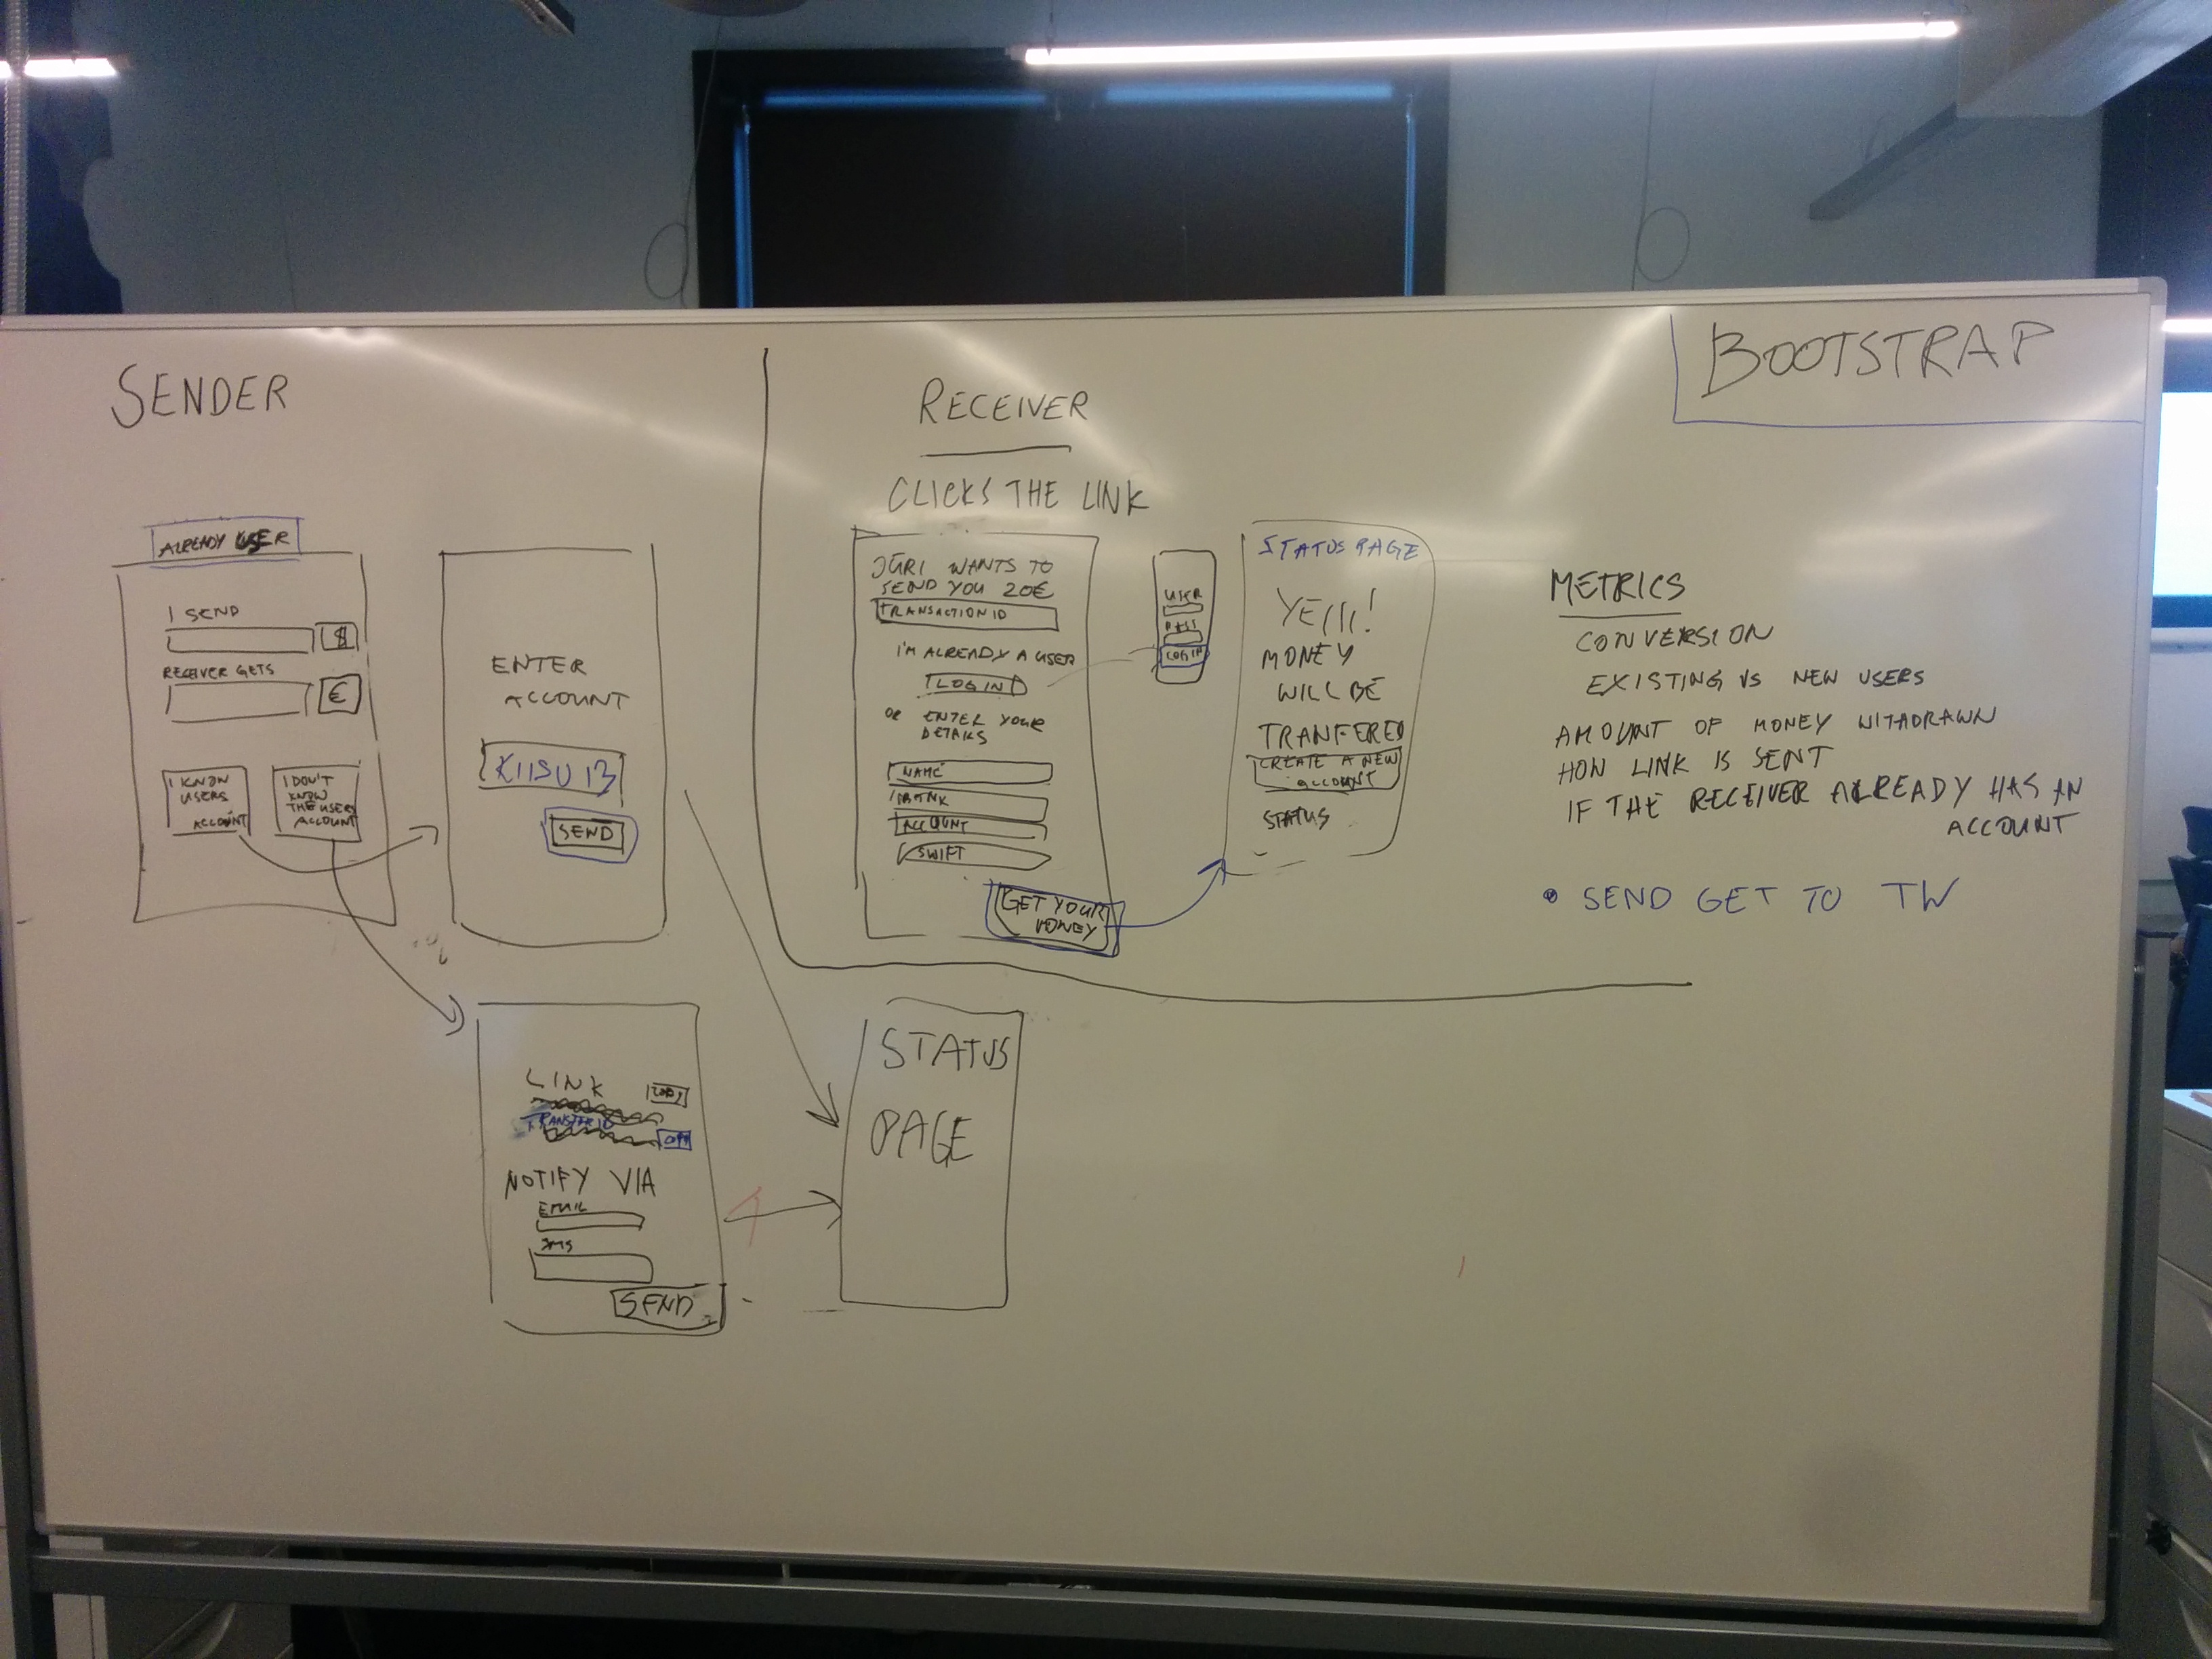 BOOTSTRAP
SENDER
ALREADY USER
I SEND
$
RECEIVER GETS
€
I KNOW
USERS
ACCOUNT
I DON'T
KNOW
THE USERS
ACCOUNT
ENTER
ACCOUNT
KIISU13
SEND
LINK
COPY
TRANSFER ID
NOTIFY VIA
EMAIL
SMS
SEND
STATUS
PAGE
RECEIVER
CLICKS THE LINK
JÜRI WANTS TO
SEND YOU 20€
TRANSACTION ID
I'M ALREADY A USER
LOG IN
OR ENTER YOUR
DETAILS
NAME
BANK
ACCOUNT
SWIFT
GET YOUR
MONEY
USER
PASS
LOGIN
STATUS PAGE
MONEY
WILL BE
TRANFERED
CREATE A NEW
ACCOUNT
STATUS
METRICS
CONVERSION
EXISTING VS NEW USERS
AMOUNT OF MONEY WITHDRAWN
HOW LINK IS SENT
IF THE RECEIVER ALREADY HAS AN
ACCOUNT
• SEND GET TO TW